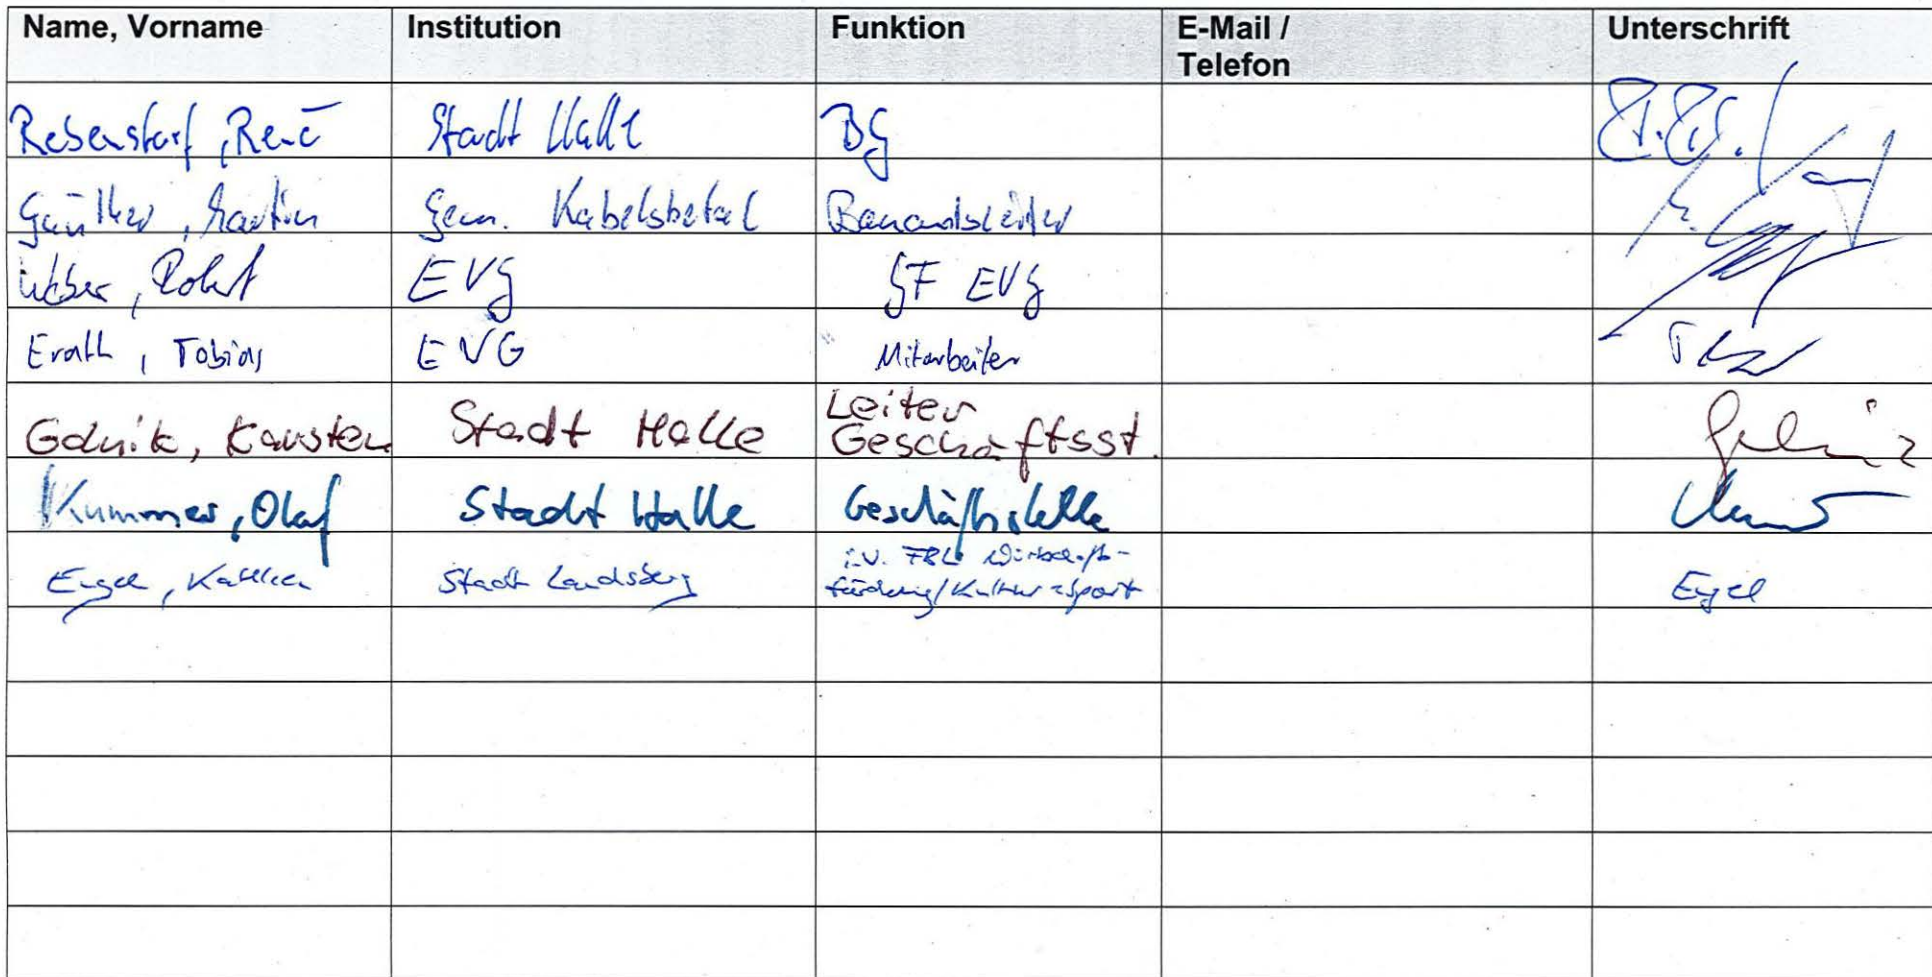 Name, Vorname Institution Funktion E-Mail / Unterschrift
Telefon
Rebenstorf, René Stadt Halle BG
Günther, Martin Gem. Kabelsketal Bauamtsleiter
Weber, Robert EVG GF EVG
Erath, Tobias EVG Mitarbeiter
Leiter
Golnik, Karsten Stadt Halle Geschäftsst.
Kummer, Olaf Stadt Halle Geschäftsstelle
i.V. FBL Wirtschafts-
Engel, Stadt Landsberg förderung/Kultur Sport Engel